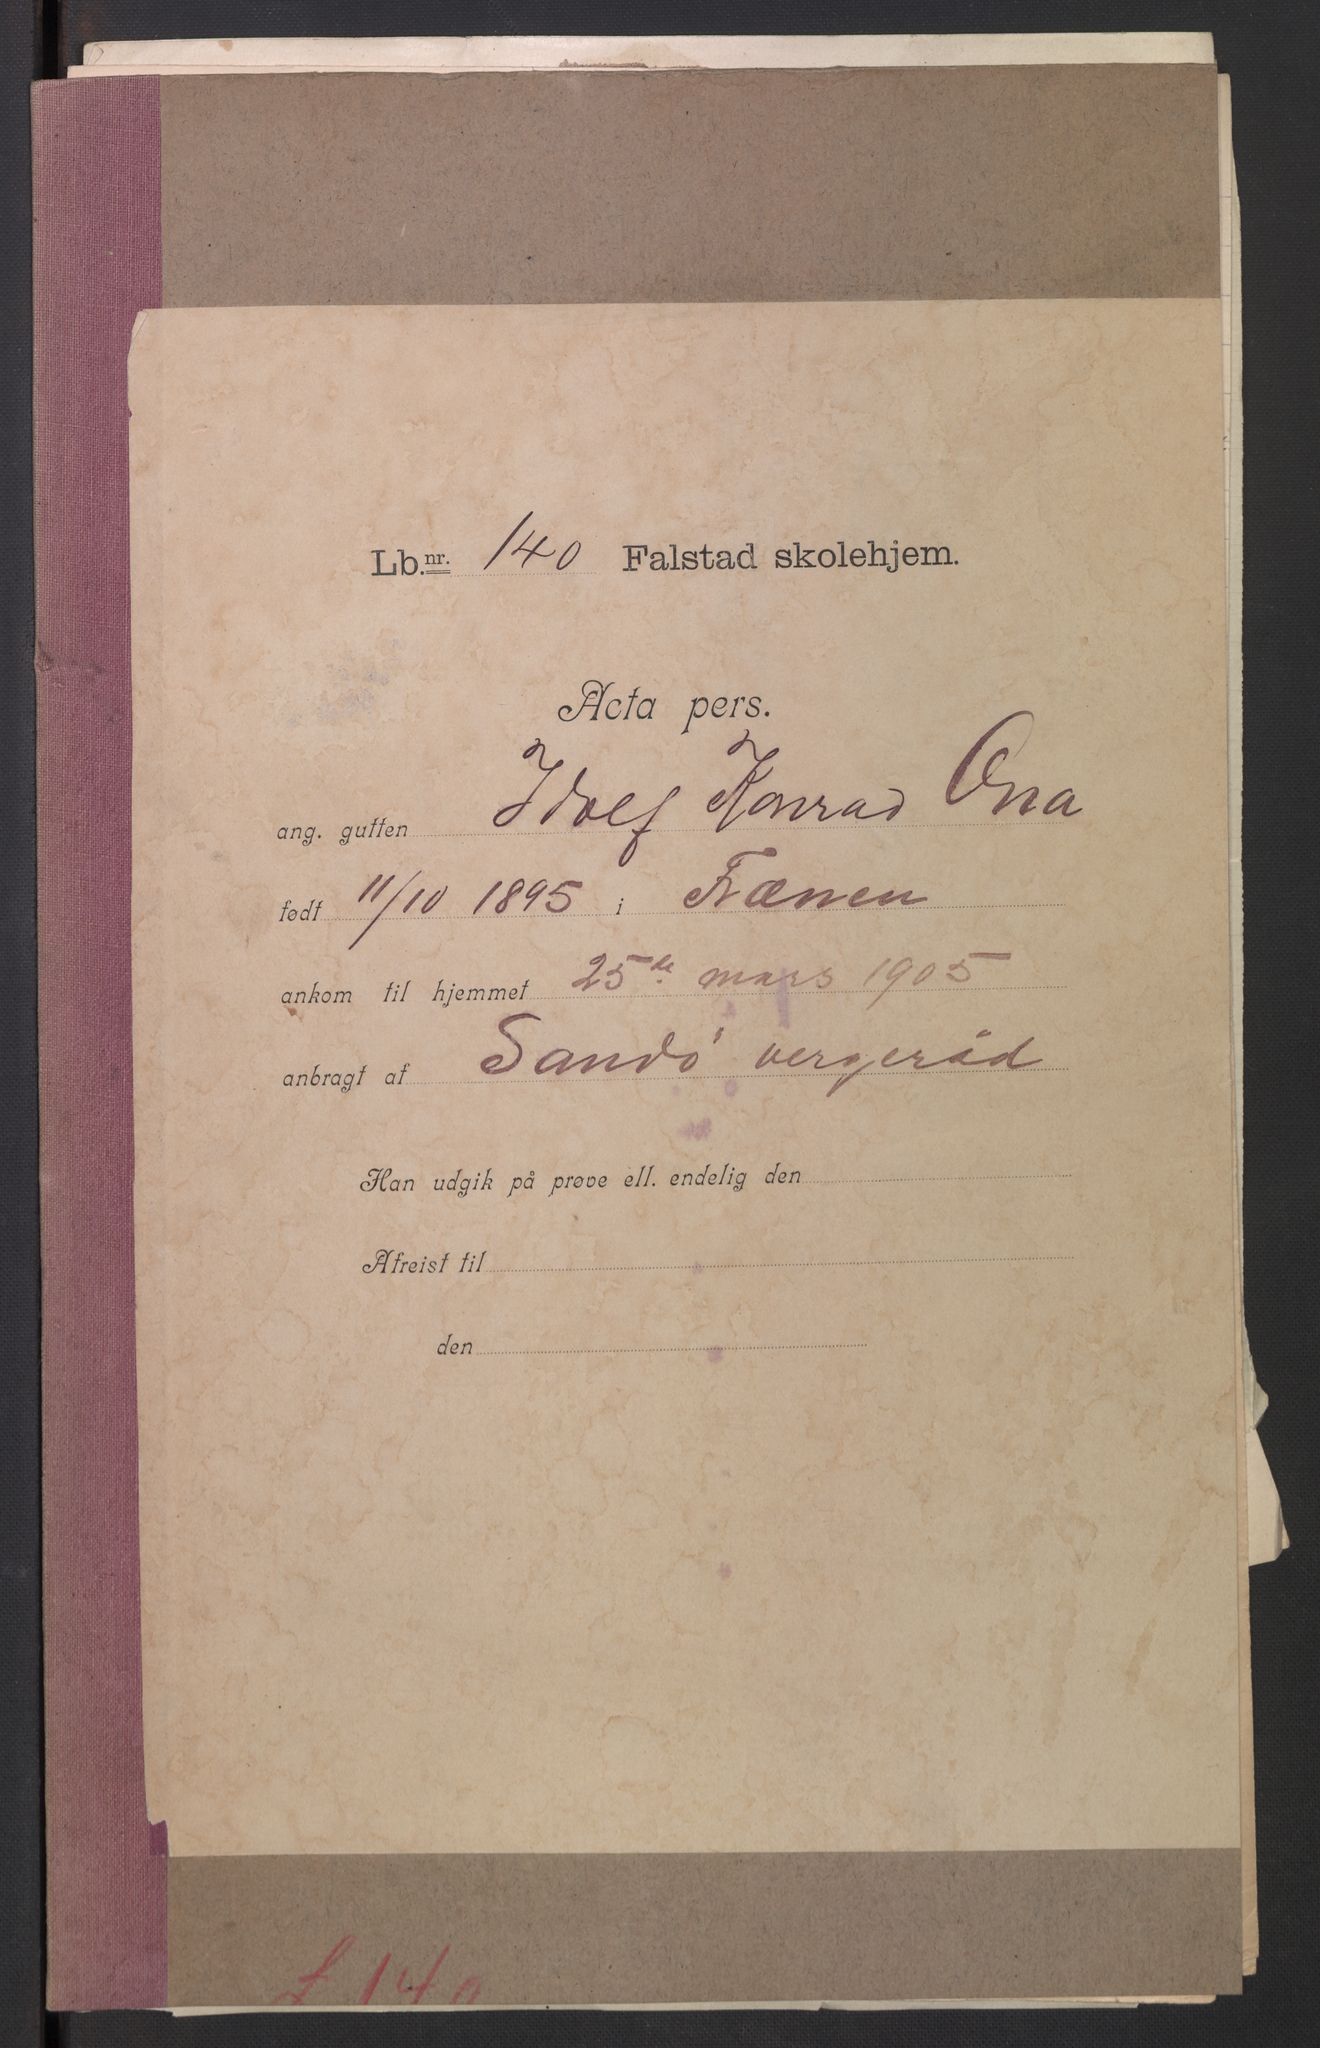 Lb.nr. 140 Falstad skolehjem.
Acta pers.
ang. gutten Idolf Konrad Ona
født 11/10 1895 i Frænen
ankom til hjemmet 25de mars 1905
anbragt af Sandø vergeråd
Han udgik på prøve ell. endelig den
Afreist til
den
L 140